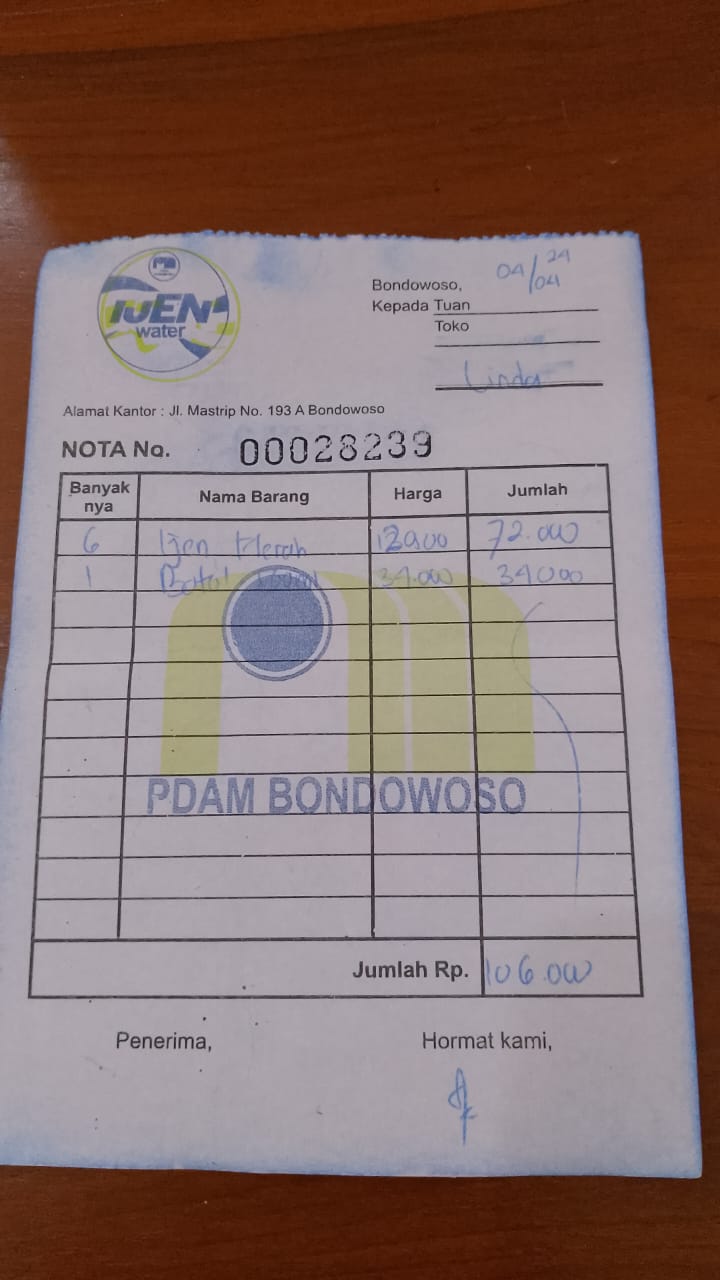 IJEN
water
Bondowoso, 04/04 24
Kepada Tuan
Toko
Linda
Alamat Kantor : Jl. Mastrip No. 193 A Bondowoso
NOTA No. 00028239
Banyak nya Nama Barang Harga Jumlah
6 Ijen Merah 12000 72.000
1 Botol 34.000 34000
PDAM BONDOWOSO
Jumlah Rp. 106.000
Penerima, Hormat kami,